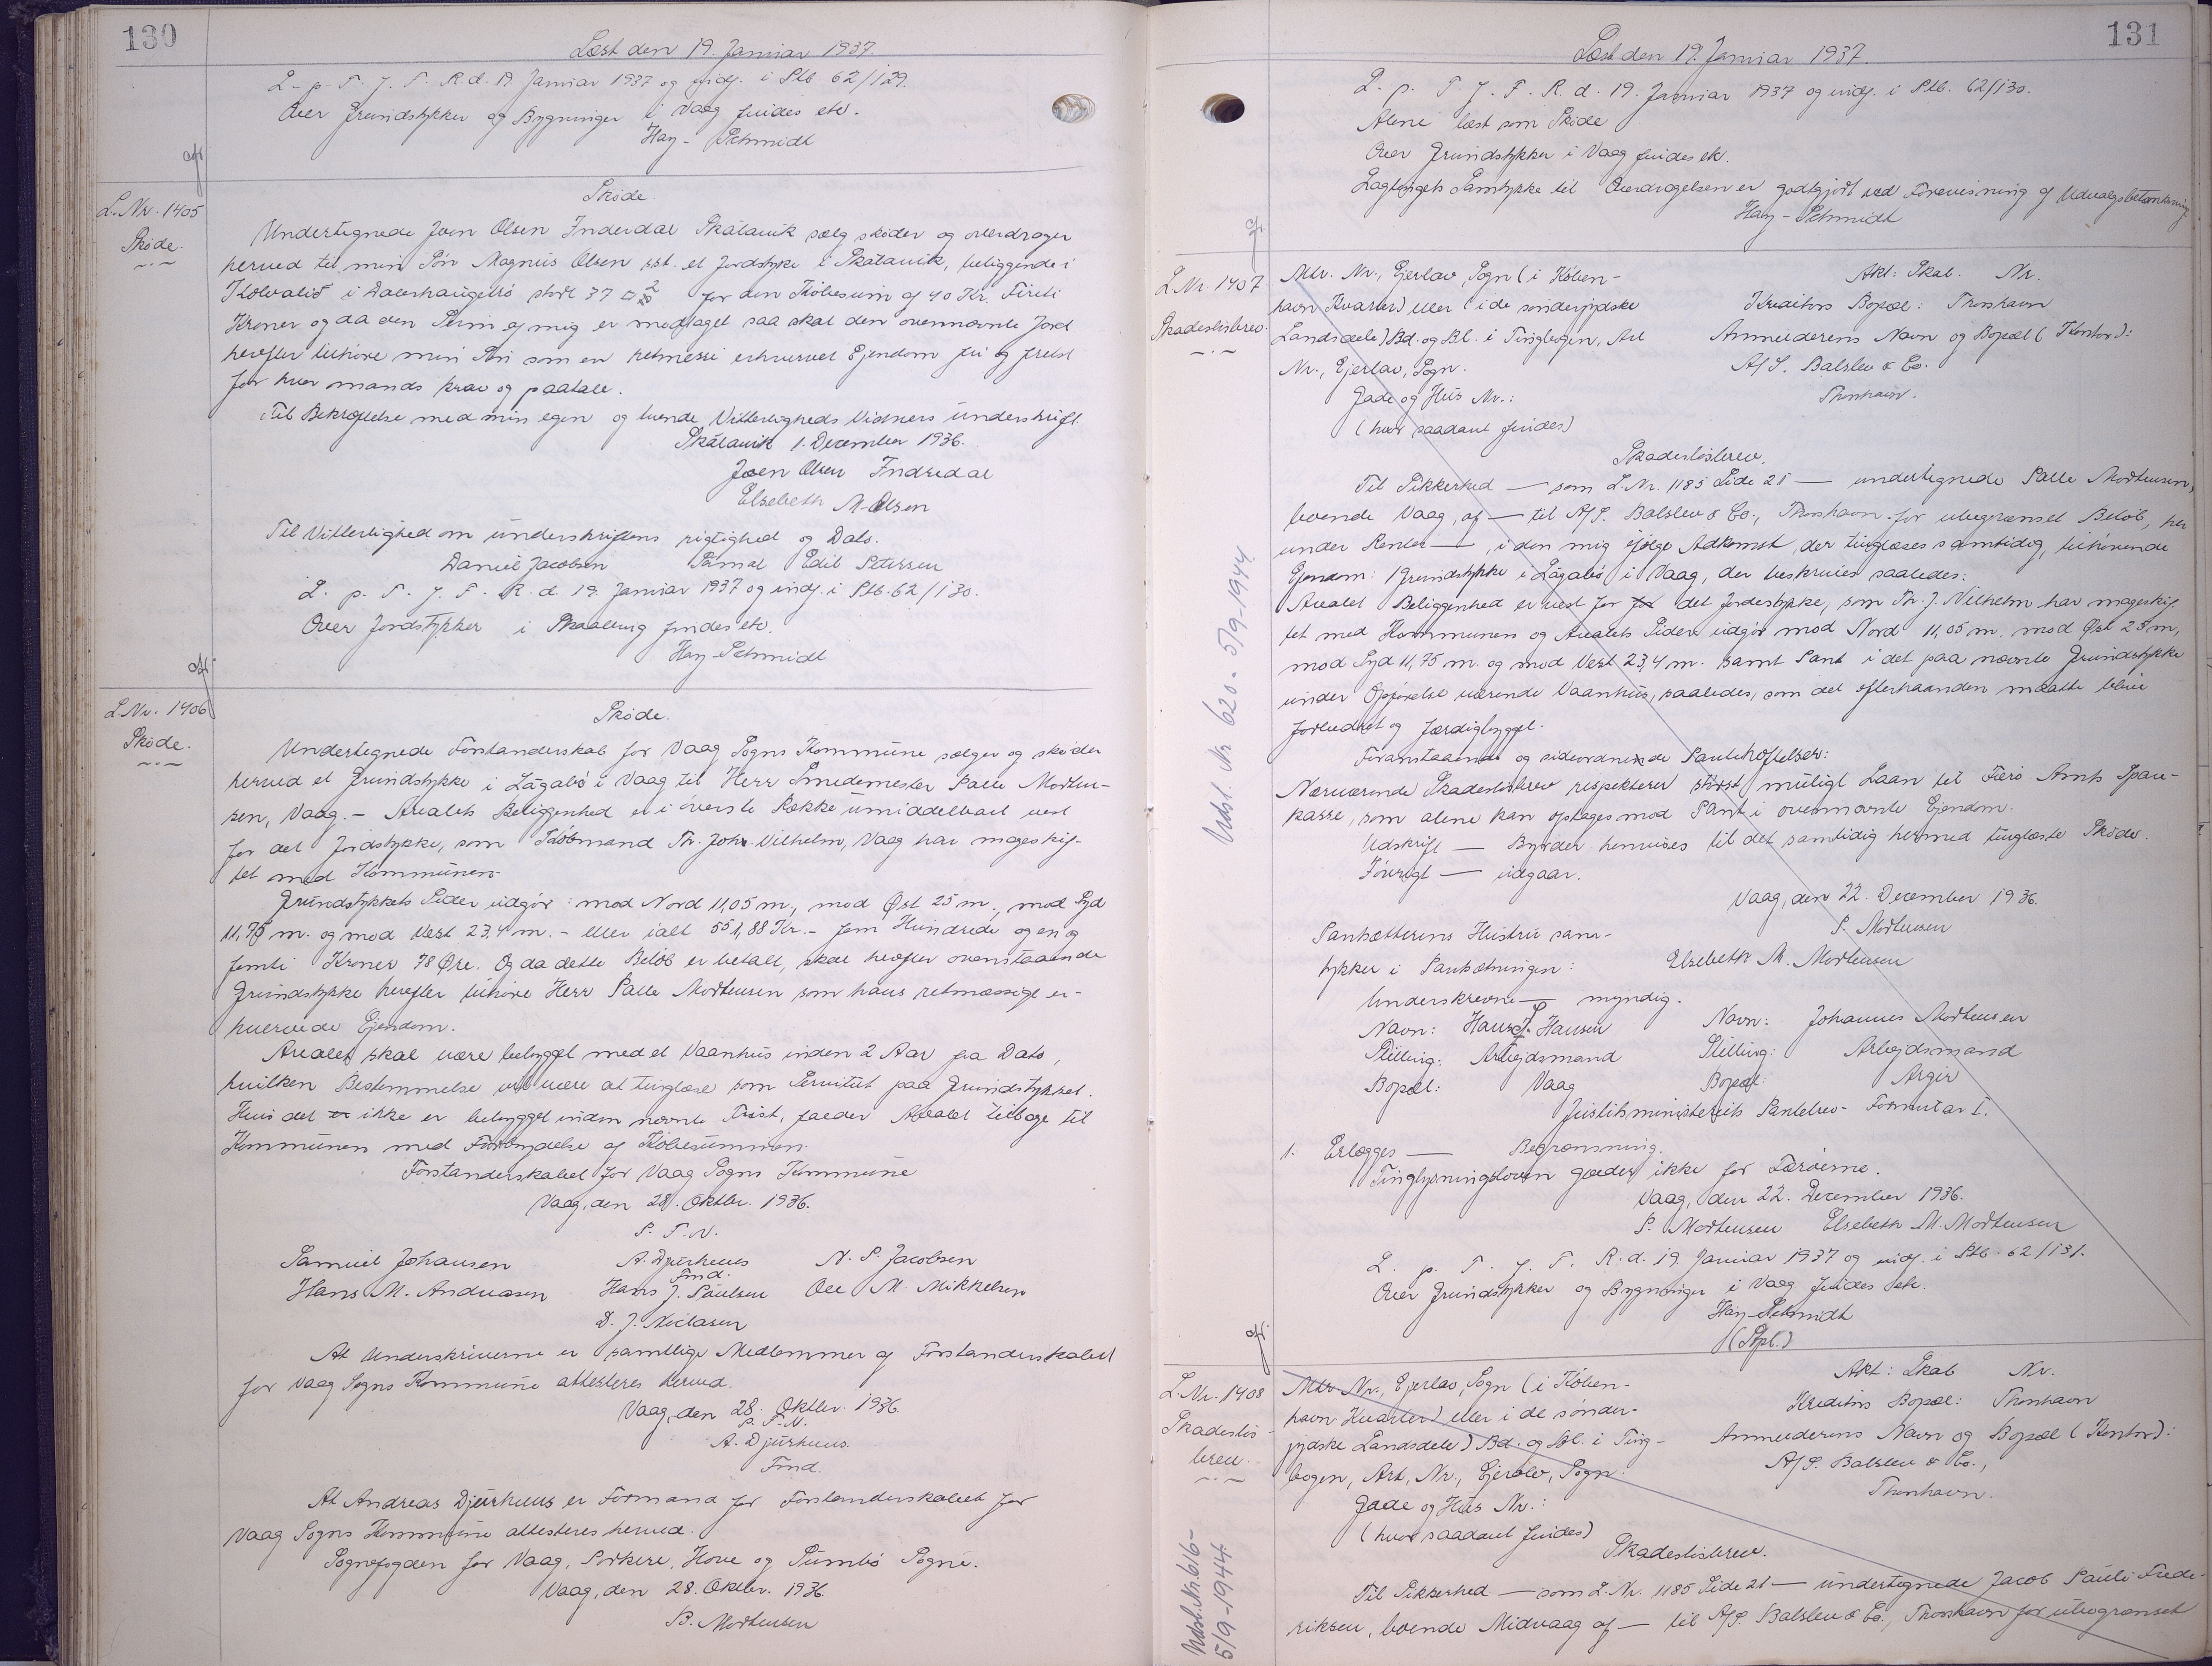 130
Læst den 19. Januar 1937.
L. p. T. f. F. R. d. 19 Januar 1937 og indf. i Ptb 62/129.
Over Grundstykker og Bygninger i Vaag findes etc.
Hay-Schmidt
L. Nr. 1405
Skøde.
Skøde.
Undertegnede Joen Olsen Inderdal Skálavik sælg skøder og overdrager
herved til min Søn Magnus Olsen sst. et Jordstyke i Skálavik, beliggende i
i Dalershaugebø stort 37 for den Købesum af 40 Kr. Fireti
Kroner og da den Sum af mig er modtaget saa skal den ovennævnte Jord
herefter tilhøre min Søn som en retmessi erhvervet Ejendom fri og frelst
for hver mands krav og paatale.
Til Bekræftelse med min egen og tvende Vitterligheds Vidners underskrift.
Skálavik 1. December 1936.
Joen Olsen Indredal
Elsebeth M. Olsen
Til Vitterlighed om underskriftens rigtighed og Dato.
Daniel Jacobsen Edil Petersen
L. p. T. f. F. R. d. 19. Januar 1937 og indf. i Ptb. 62/130.
Over Jordstykker i Skaalevig findes etc.
Hay-Schmidt
L. Nr. 1406
Skøde.
Skøde.
Undertegnede Forstanderskab for Vaag Sogns Kommune sælger og skøder
herved et Grundstykke i Lágabø i Vaag til Herr Smedemester Palle Morten-
sen, Vaag. - Arealets Beliggenhed er i øverste Række umiddelbart vest
for det Jordstykke, som Købmand Th. Joh. Vilhelm, Vaag har mageskif-
tet med Kommunen.
Grundstykkets Sider udgør: mod Nord 11,05 m., mod Øst 25 m., mod Syd
11,75 m. og mod Vest 23,4 m. - eller ialt 551,88 Kr. - fem Hundrede og en og
femti Kroner 78 Øre. Og da dette Beløb er betalt, skal herefter ovenstaaende
Grundstykke herefter tilhøre Herr Palle Mortensen som hans retmæssige er-
hvervede Ejendom.
Arealet skal være bebygget med et Vaanhus inden 2 Aar fra Dato,
hvilken Bestemmelse vil være at tinglæse som Servitut paa Grundstykket.
Hvis det er ikke er bebygget inden nævnte Frist, falder Arealet tilbage til
Kommunen med Fortrydelse af Købesummen.
Forstanderskabet for Vaag Sogns Kommune
Vaag, den 28. Oktbr. 1936.
P. F. V.
Samuel Johansen A. Djurhuus N. P. Jacobsen
Fmd.
Hans M. Andreasen Hans J. Paulsen Ole M. Mikkelsen
D. J. Niclasen
At Underskriverne er samtlige Medlemmer af Forstanderskabet
for Vaag Sogns Kommune attesteres herved.
Vaag, den 28. Oktbr. 1936.
P. F. V.
A. Djurhuus.
Fmd.
At Andreas Djurhuus er Formand for Forstanderskabet for
Vaag Sogns Kommune attesteres herved.
Sognefogden for Vaag, Porkere, Hove og Sumbø Sogne.
Vaag, den 28. Oktbr. 1936.
B. Mortensen
131
Læst den 19. Januar 1937.
L. p. T. f. F. R. d. 19. Januar 1937 og indf. i Ptb. 62/130.
Alene læst som Skøde
Over Grundstykker i Vaag findes etc.
Lagtingets Samtykke til Overdragelsen er godtgjort ved Forevisning af Udvalgsbetænkning
Hay-Schmidt
L. Nr. 1407
Skadesløsbrev.
Udsl. Nr. 620 - 5/9-1944
Mtr. Nr., Ejerlav, Sogn (i Køben- Akt: Skab. Nr.
havn Kvarter) eller (i de sønderjydske Kreditors Bopæl: Thorshavn
Landsdele) Bd. og Bl. i Tingbogen, Art Anmelderens Navn og Bopæl (Kontor):
Nr., Ejerlav, Sogn. A/S. Balslev & Co.
Gade og Hus Nr.: Thorshavn.
(hvor saadant findes)
Skadesløsbrev.
Til Sikkerhed — som L. Nr. 1185 Side 21 — undertegnede Palle Mortensen,
boende Vaag, af — til A/S. Balslev & Co., Thorshavn. for ubegrænset Beløb, her
under Renter —, i den mig ifølge Adkomst, der tinglæses samtidig, tilhørende
Ejendom: 1 Grundstykke i Lágabø i Vaag, der beskrives saaledes:
Arealet Beliggenhed er vest for for det Jordestykke, som Th. J. Vilhelm har mageskif-
tet med Kommunen og Arealets Sider udgør mod Nord 11,05 m. mod Øst 25 m,
mod Syd 11,75 m. og mod Vest 23,4 m. samt Pant i det paa nævnte Grundstykke
under Opførelse værende Vaanhus, saaledes, som det efterhaanden maatte blive
forbedret og færdigbygget.
Foranstaaende og sideordnende Pantehæftelser:
Nærværende Skadesløsbrev respekterer størst muligt Laan til Færø Amts Spare-
kasse, som alene kan optages mod Pant i ovennævnte Ejendom.
Udskrift — Byrder henvises til det samtidig hermed tinglæste Skøde.
Iøvrigt — udgaar.
Vaag, den 22. December 1936.
Pantsætterens Hustru sam- P. Mortensen
tykker i Pantsætningen: Elsebeth M. Mortensen
Underskrevne — myndig.
Navn: Hans J. Hansen Navn: Johannes Mortensen
Stilling: Arbejdsmand Stilling: Arbejdsmand
Bopæl: Vaag Bopæl: Argir
Justitsministeriets Pantebrev - Formular I.
1. Erlægges — Begrænsning.
Tinglysningsloven gælder ikke for Færøerne.
Vaag, den 22. December 1936.
P. Mortensen Elsebeth M. Mortensen
L. p. T. f. F. R. d. 19. Januar 1937 og indf. i Ptb. 62/131.
Over Grundstykker og Bygninger i Vaag findes etc.
Hay-Schmidt
(Stpl.)
L. Nr. 1408
Skadesløs-
brev.
Udsl. Nr. 616 -
5/9-1944
Mtr. Nr., Ejerlav, Sogn (i Køben- Akt: Skab Nr.
havn Kvarter) eller i de sønder- Kreditors Bopæl: Thorshavn
jydske Landsdele) Bd. og Bl. i Ting- Anmelderens Navn og Bopæl (Kontor):
bogen, Art, Nr., Ejerlav, Sogn. A/S. Balslev & Co.,
Gade og Hus Nr.: Thorshavn.
(hvor saadant findes)
Skadesløsbrev.
Til Sikkerhed — som L. Nr. 1185 Side 21 — undertegnede Jacob Pauli Frede-
riksen, boende Midvaag af — til A/S. Balslev & Co., Thorshavn for ubegrænset